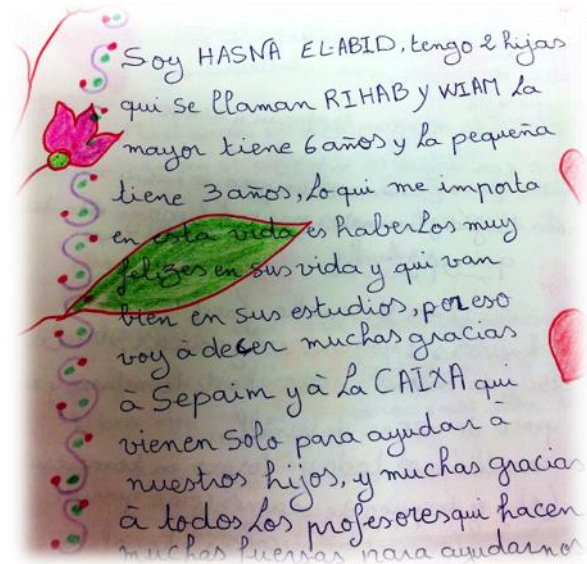 Soy HASNA EL-ABID, tengo 2 hijas
qui se llaman RIHAB y WIAM La
mayor tiene 6 años y La pequeña
tiene 3 años, Lo qui me importa
en esta vida es haberLos muy
felizes en sus vida y qui van
bien en sus estudios, por eso
voy à decer muchas gracias
à Sepaim y à La CAIXA qui
vienen Solo para ayudar à
nuestros hijos, y muchas gracias
à todos Los profesores qui hacen
muchas fuersas para ayudarnos